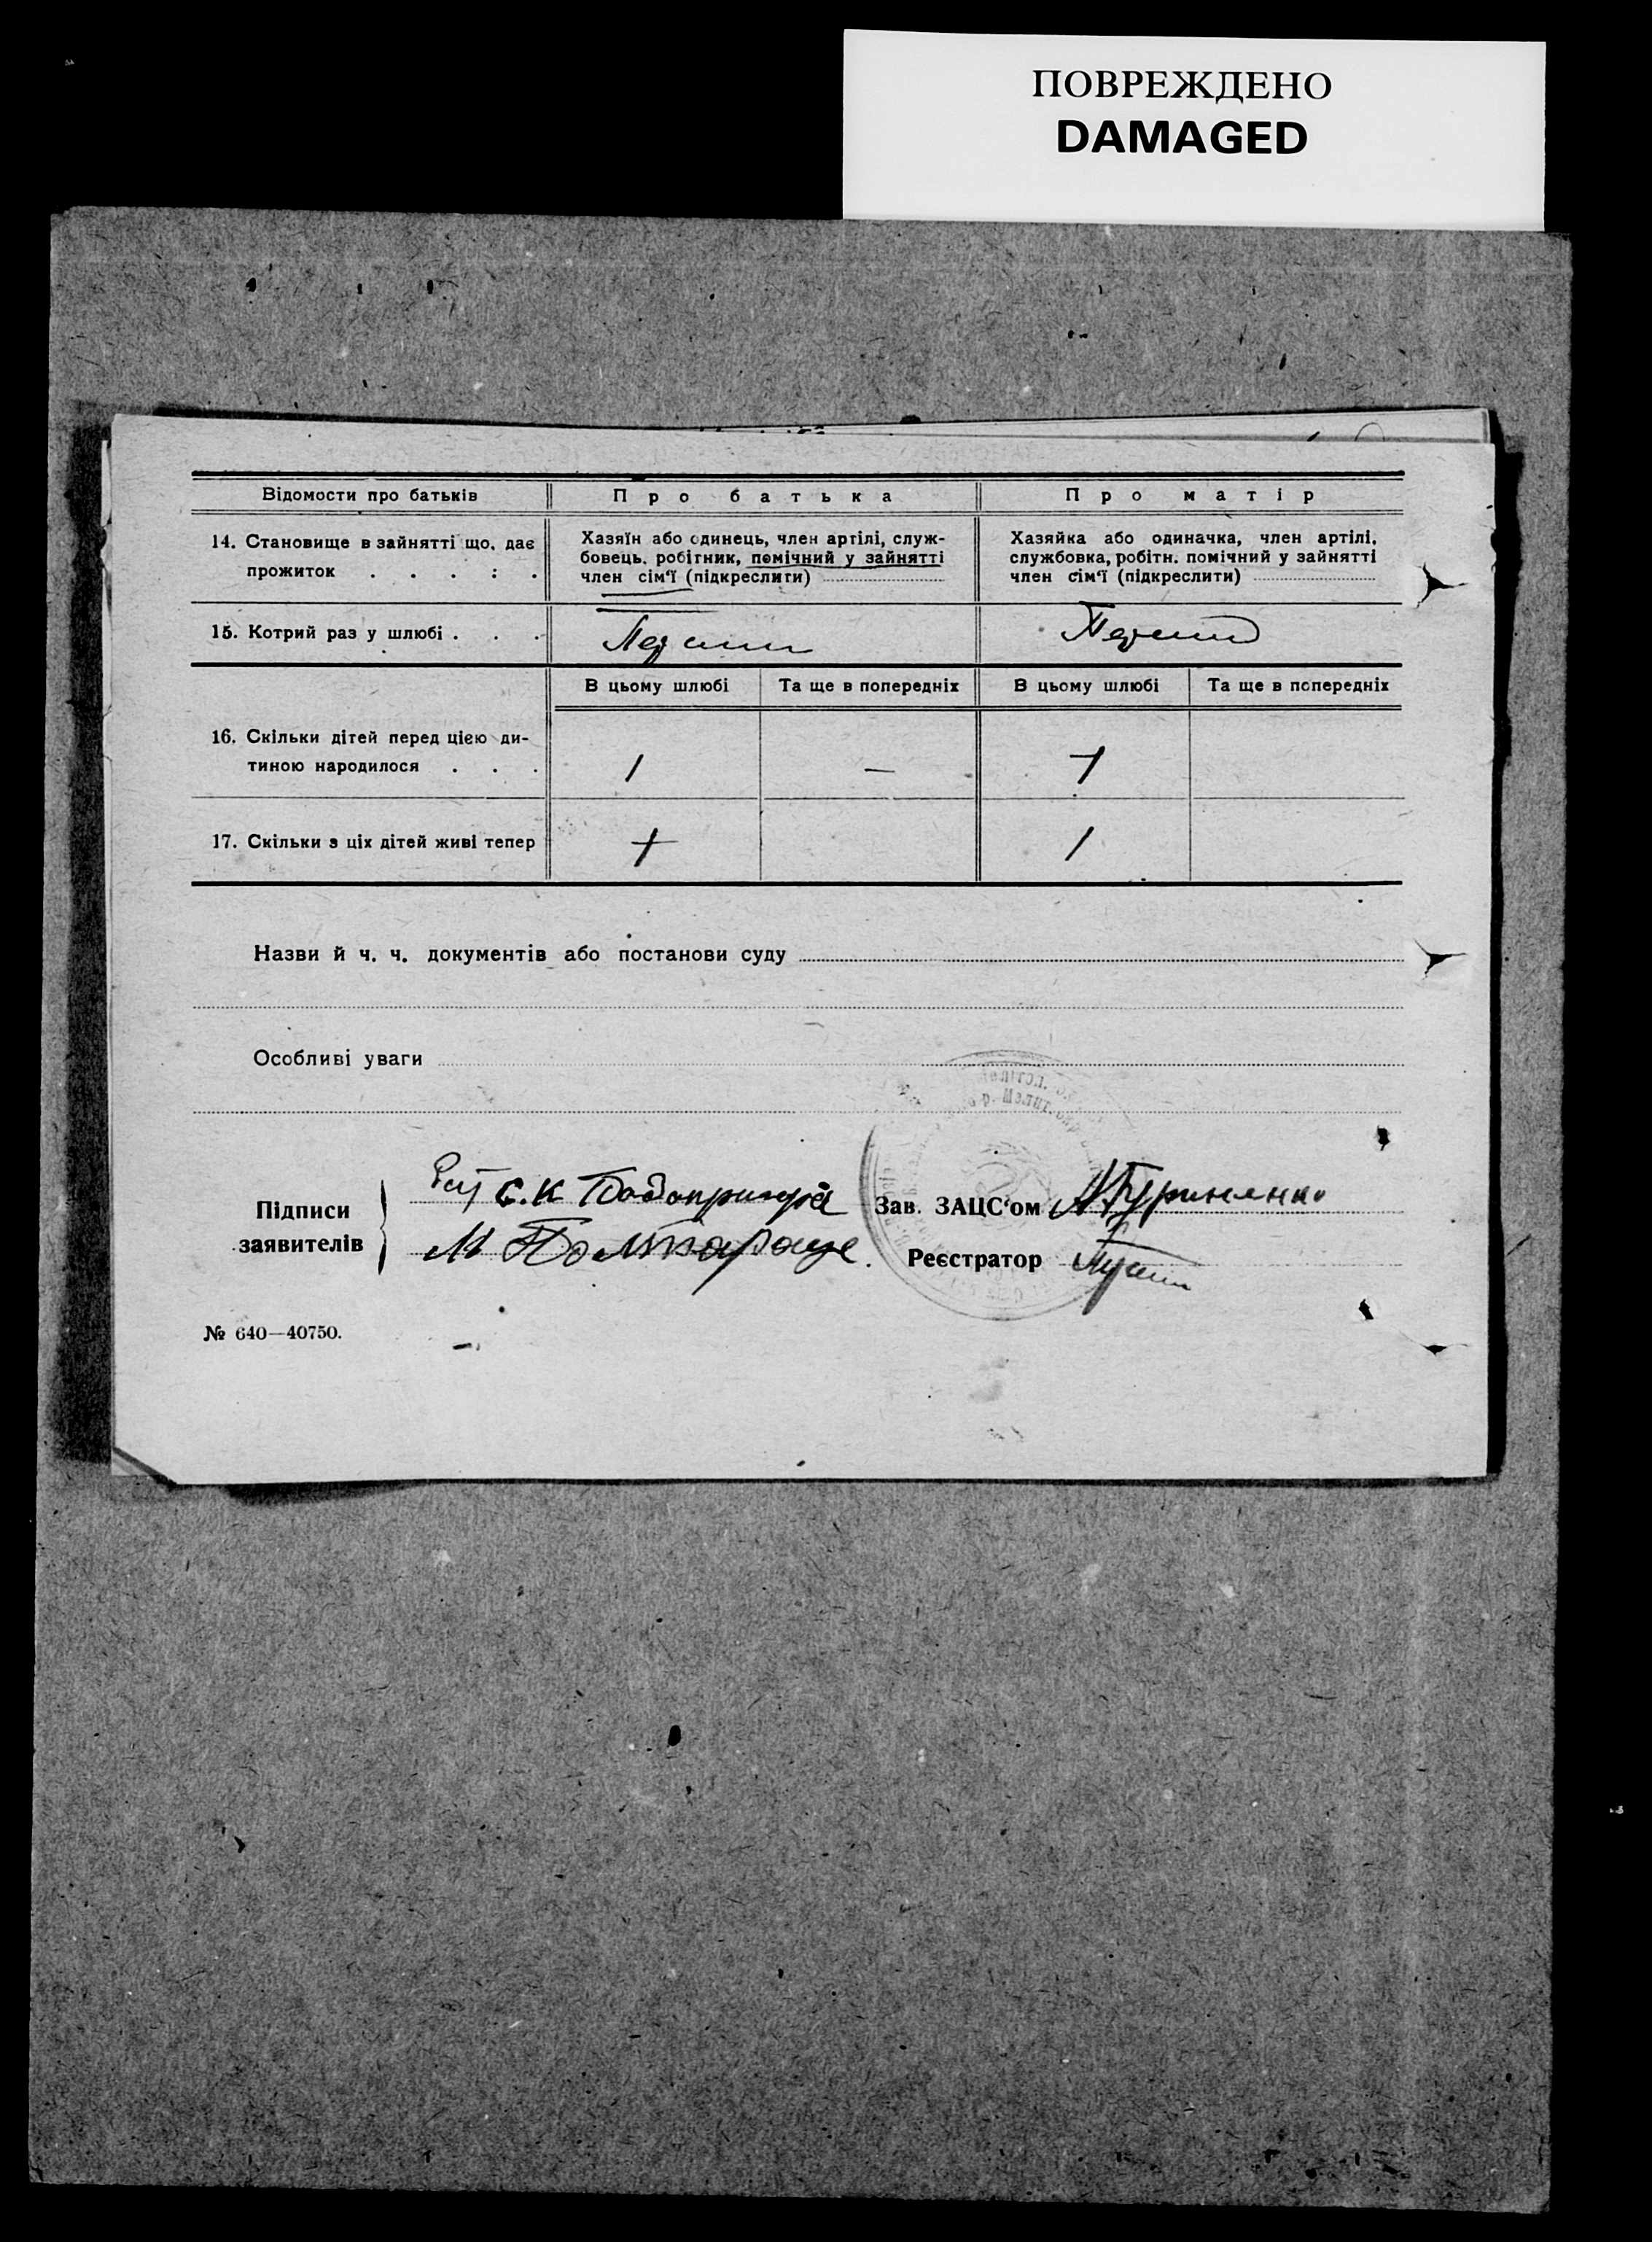 ПОВРЕЖДЕНО
DAMAGED
Відомости про батьків
Про батька
Про матір
14. Становище в зайнятті що, дає
прожиток . . . : .
Хазяїн або одинець, член артілі, служ-
бовець, робітник, помічний у зайнятті
член сім'ї (підкреслити)
Хазяйка або одиначка, член артілі,
службовка, робітн. помічний у зайнятті
член сім'ї (підкреслити)
15. Котрий раз у шлюбі . . .
В цьому шлюбі
Та ще в попередніх
В цьому шлюбі
Та ще в попередніх
16. Скільки дітей перед цією ди-
тиною народилося . . .
1
—
1
17. Скільки з ціх дітей живі тепер
1
1
Назви й ч. ч. документів або постанови суду
Особливі уваги
Підписи
заявителів
С. К
Зав. ЗАЦС'ом
Реєстратор
№ 640—40750.